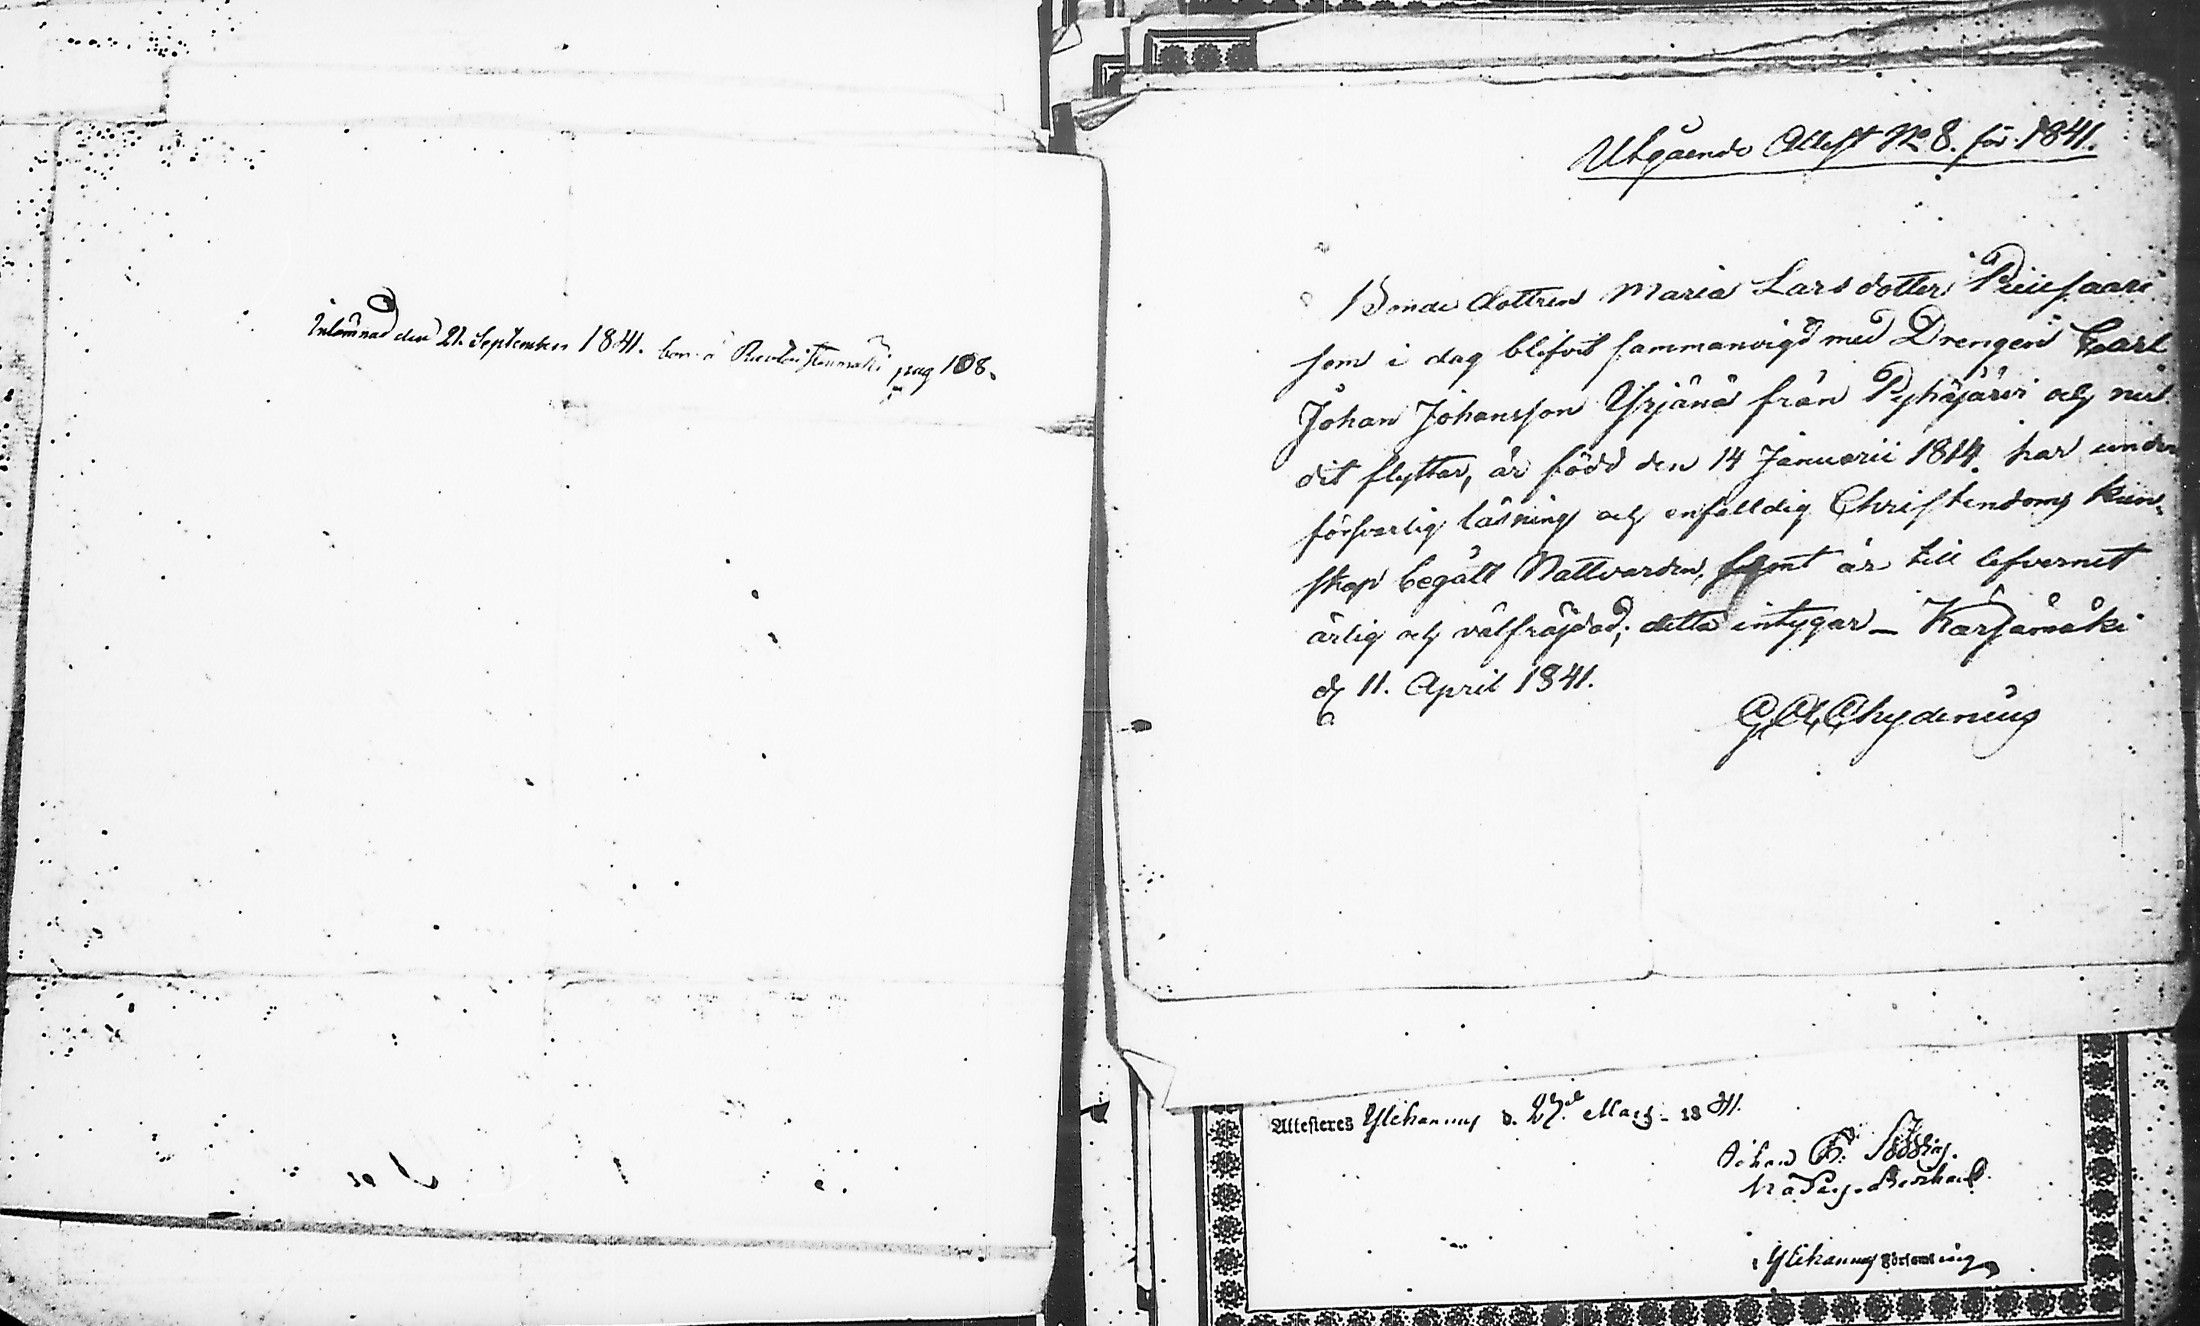 Inlämnad den 21. September 1841. pag 108.
Utgående Attest No 8. för 1841.
Bonde dottren Maria Larsdotter Piiesaari
som i dag blifvit sammanvigd med Drengen Carl
Johan Johansson Yrjänä från Pyhäjärvi och nu
dit flyttar, är född den 14 Januarii 1814. har under
försvarlig läsning och enfalldig Christendoms kun-
skap begått Nattvarden, samt är till lefvernet
ärlig och välfräjdad; detta intygar – Kärsämäki
d. 11. April 1841.
G. A. Chydenius
Attesteres Ylikannus d. 27de Mars - 1841.
Johan
Ylikannus Församling